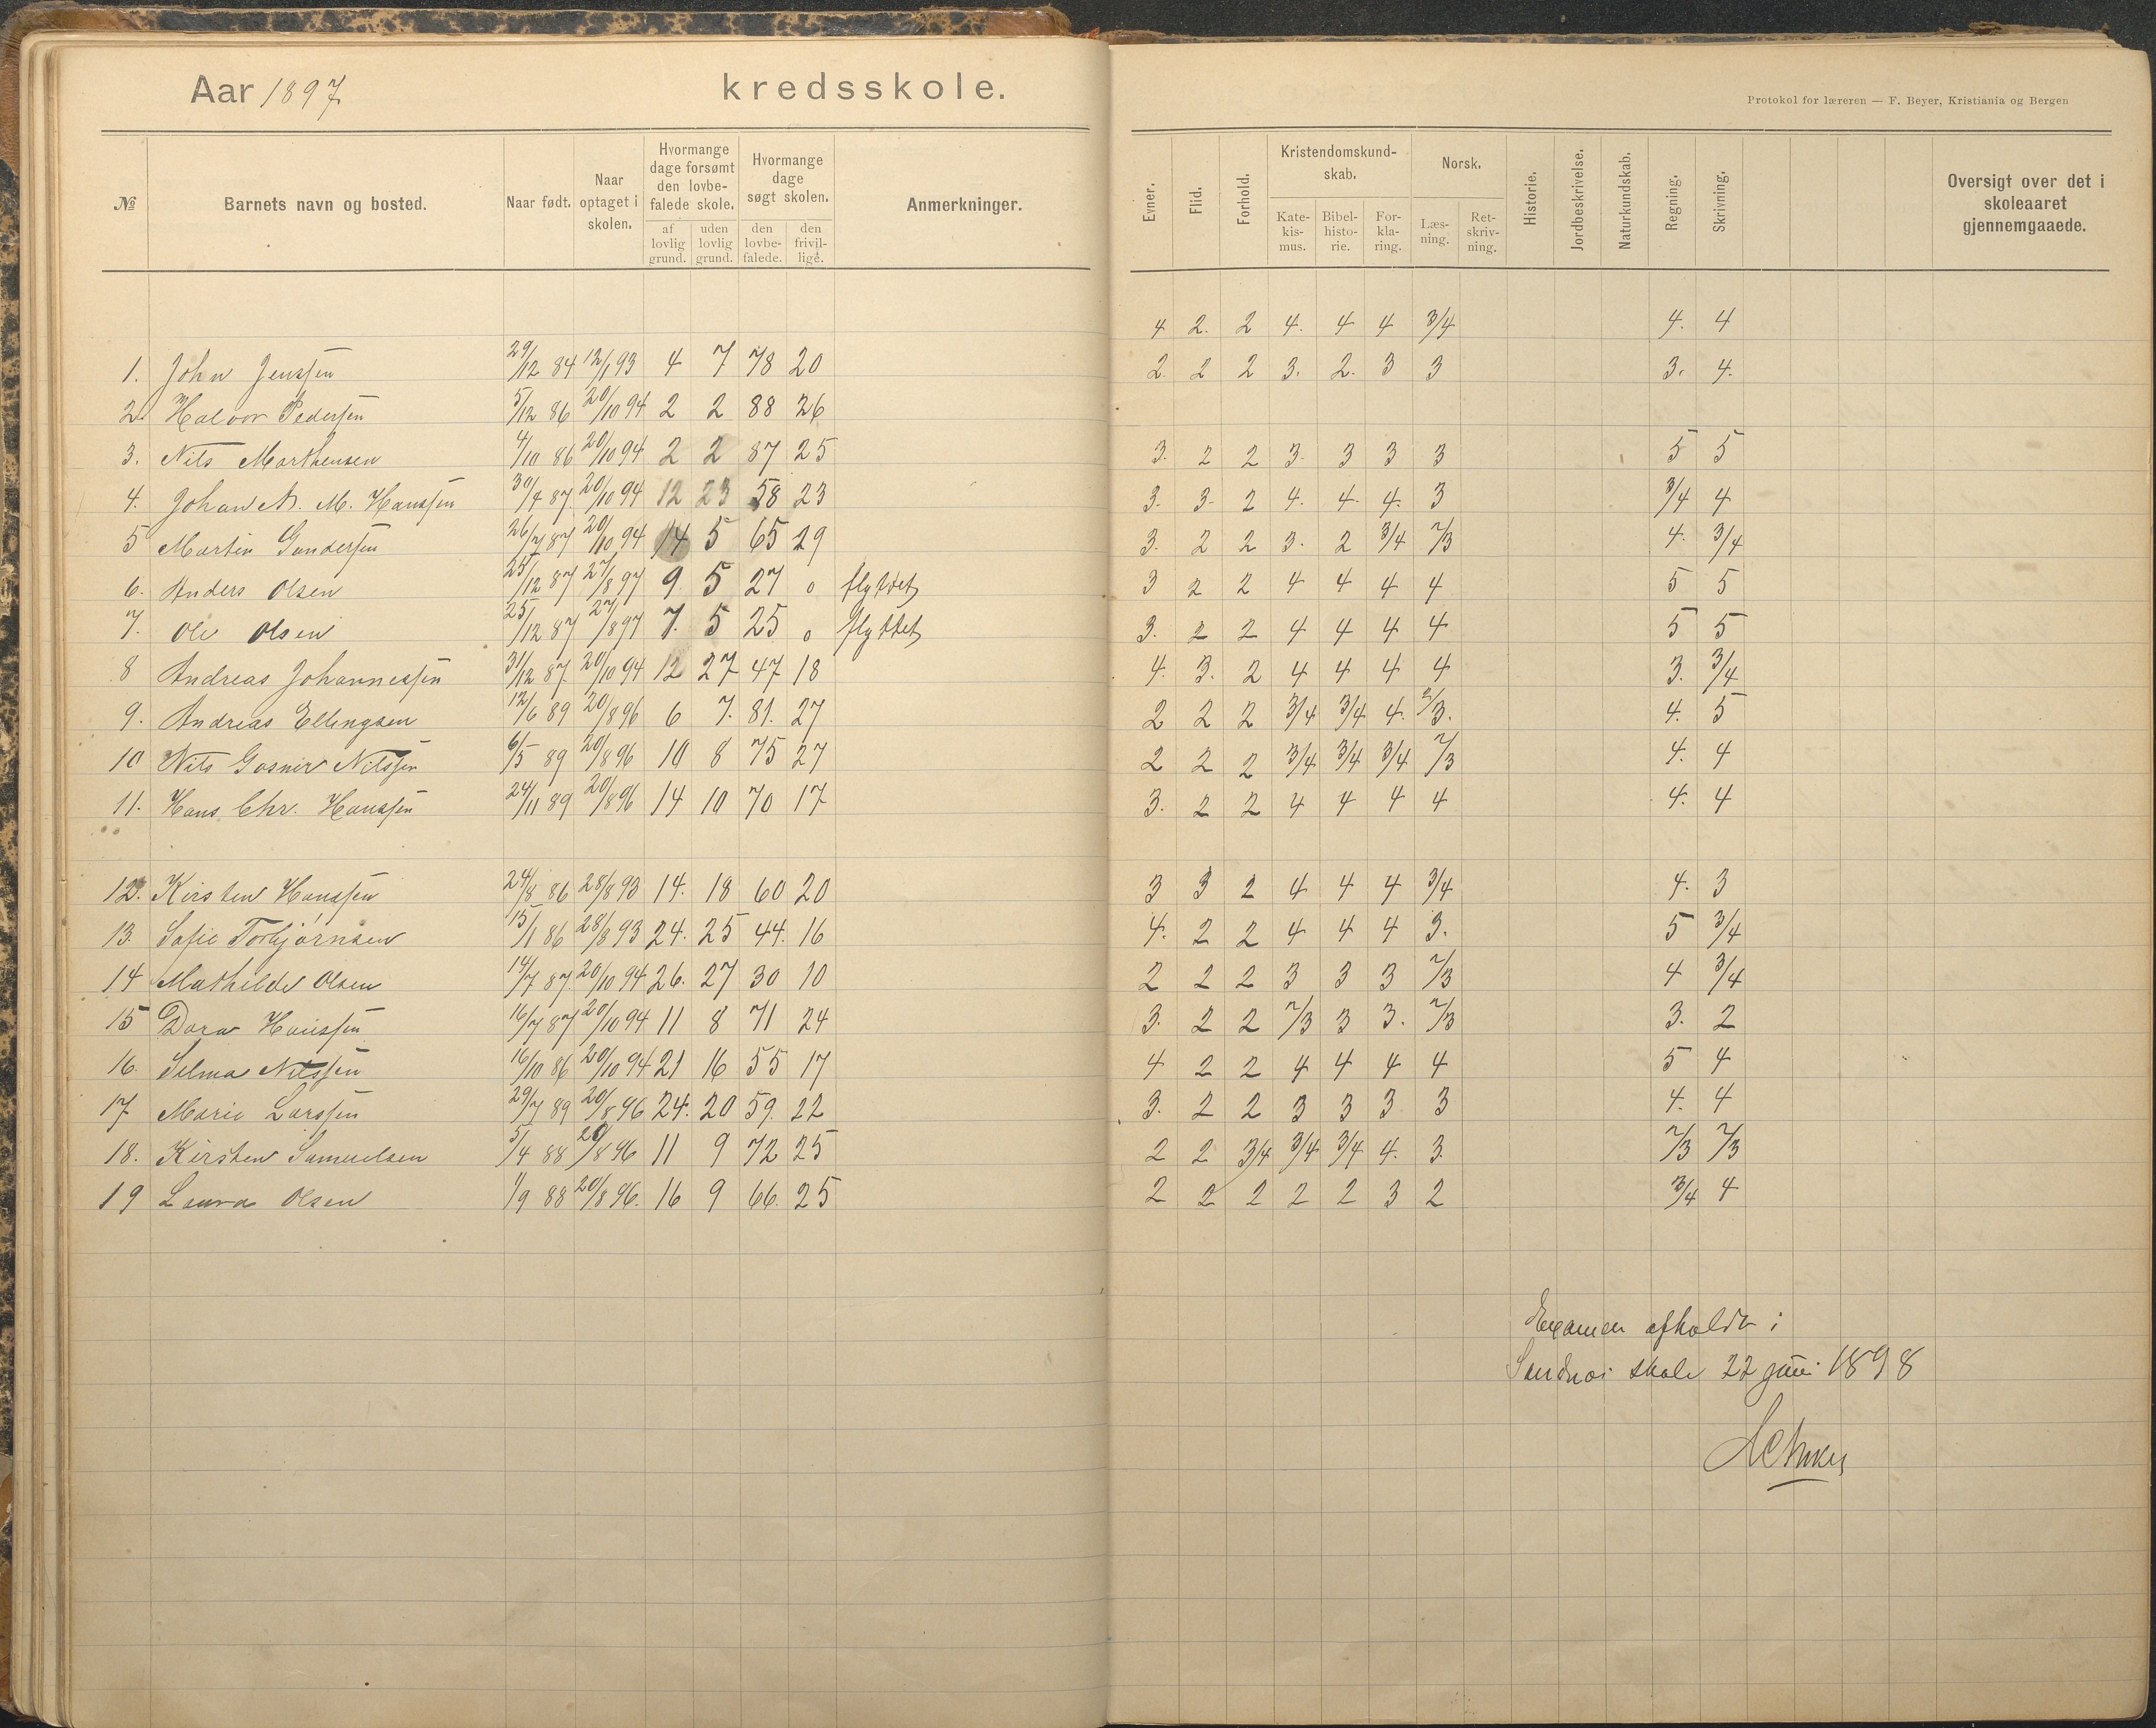 Aar 1897 kredsskole.
Protokol for læreren — F. Beyer, Kristiania og Bergen
№ Barnets navn og bosted. Naar født. Naar optaget i skolen. Hvormange dage forsømt den lovbefalede skole. af lovlig grund. uden lovlig grund. Hvormange dage søgt skolen. den lovbefalede. den frivillige. Anmerkninger. Evner. Flid. Forhold. Kristendomskundskab. Katekismus. Bibelhistorie. Forklaring. Norsk. Læsning. Retskrivning. Historie. Jordbeskrivelse. Naturkundskab. Regning. Skrivning. Oversigt over det i skoleaaret gjennemgaaede.
4 2. 2 4. 4 4 3/4 4. 4
1. John Jenssen 29/12 84 12/1 93 4 7 78 20 2. 2 2 3. 2. 3 3 3. 4.
2. Halvor Pedersen 5/12 86 20/10 94 2 2 88 26
3. Nils Marthensen 4/10 86 20/10 94 2 2 87 25 3. 2 2 3. 3 3 3 5 5
4. Johan A. M. Hanssen 30/7 87. 20/10 94 12 23 58 23 3. 3. 2 4. 4. 4. 3 3/4 4
5 Martin Gundersen 26/7 87 20/10 94 14 5 65 29 3. 2 2 3. 2 3/4 2/3 4. 3/4
6. Anders Olsen 25/12 87 27/8 97 9 5 27 0 flyttet 3 2 2 4 4 4 4 5 5
7. Ole Olsen 25/12 87 27/8 97 7. 5 25 0 flyttet 3. 2 2 4 4 4 4 5 5
8 Andreas Johannessen 31/12 87. 20/10 94 12 27 47 18 4. 3. 2 4 4 4 4 3. 3/4
9. Andreas Ellingsen 12/6 89 20/8 96 6 7. 81. 27 2 2 2 3/4 3/4 4. 2/3. 4. 5
10 Nils Nilssen 6/5 89 20/8 96 10 8 75 27 2 2 2 3/4 3/4 3/4 2/3 4. 4
11. Hans Chr. Hanssen 24/11 89 20/8 96 14 10 70 17 3. 2 2 4 4 4 4 4. 4
12. Kirsten Hanssen 24/8 86 28/8 93 14. 18 60 20 3 3 2 4 4 4 3/4 4. 3
13. Sofie Torbjørnsen 15/1 86 28/8 93 24. 25 44. 16 4. 2 2 4 4 4 3. 5 3/4
14 Mathilde Olsen 14/7 87. 20/10 94 26. 27 30 10 2 2 2 3 3 3 2/3 4 3/4
15 Dora Hanssen 16/7 87 20/10 94 11 8 71 24 3. 2 2 2/3 3 3. 2/3 3. 2
16. Selma Nilssen 16/10 86 20/10 94 21 16 55 17 4 2 2 4 4 4 4 5 4
17 Marie Larssen 29/7 89 20/8 96 24. 20 59. 22 3. 2 2 3 3 3 3 4. 4
18. Kirsten Samuelsen 5/4 88 20/8 96 11 9 72 25 2 2 3/4 3/4 3/4 4. 3. 2/3 2/3
19 Laura Olsen 1/9 88 20/8 96. 16 9 66. 25 2 2 2 2 2 3 2 3/4 4
Examen afholdt i
Sandnes skole 22 juni 1898